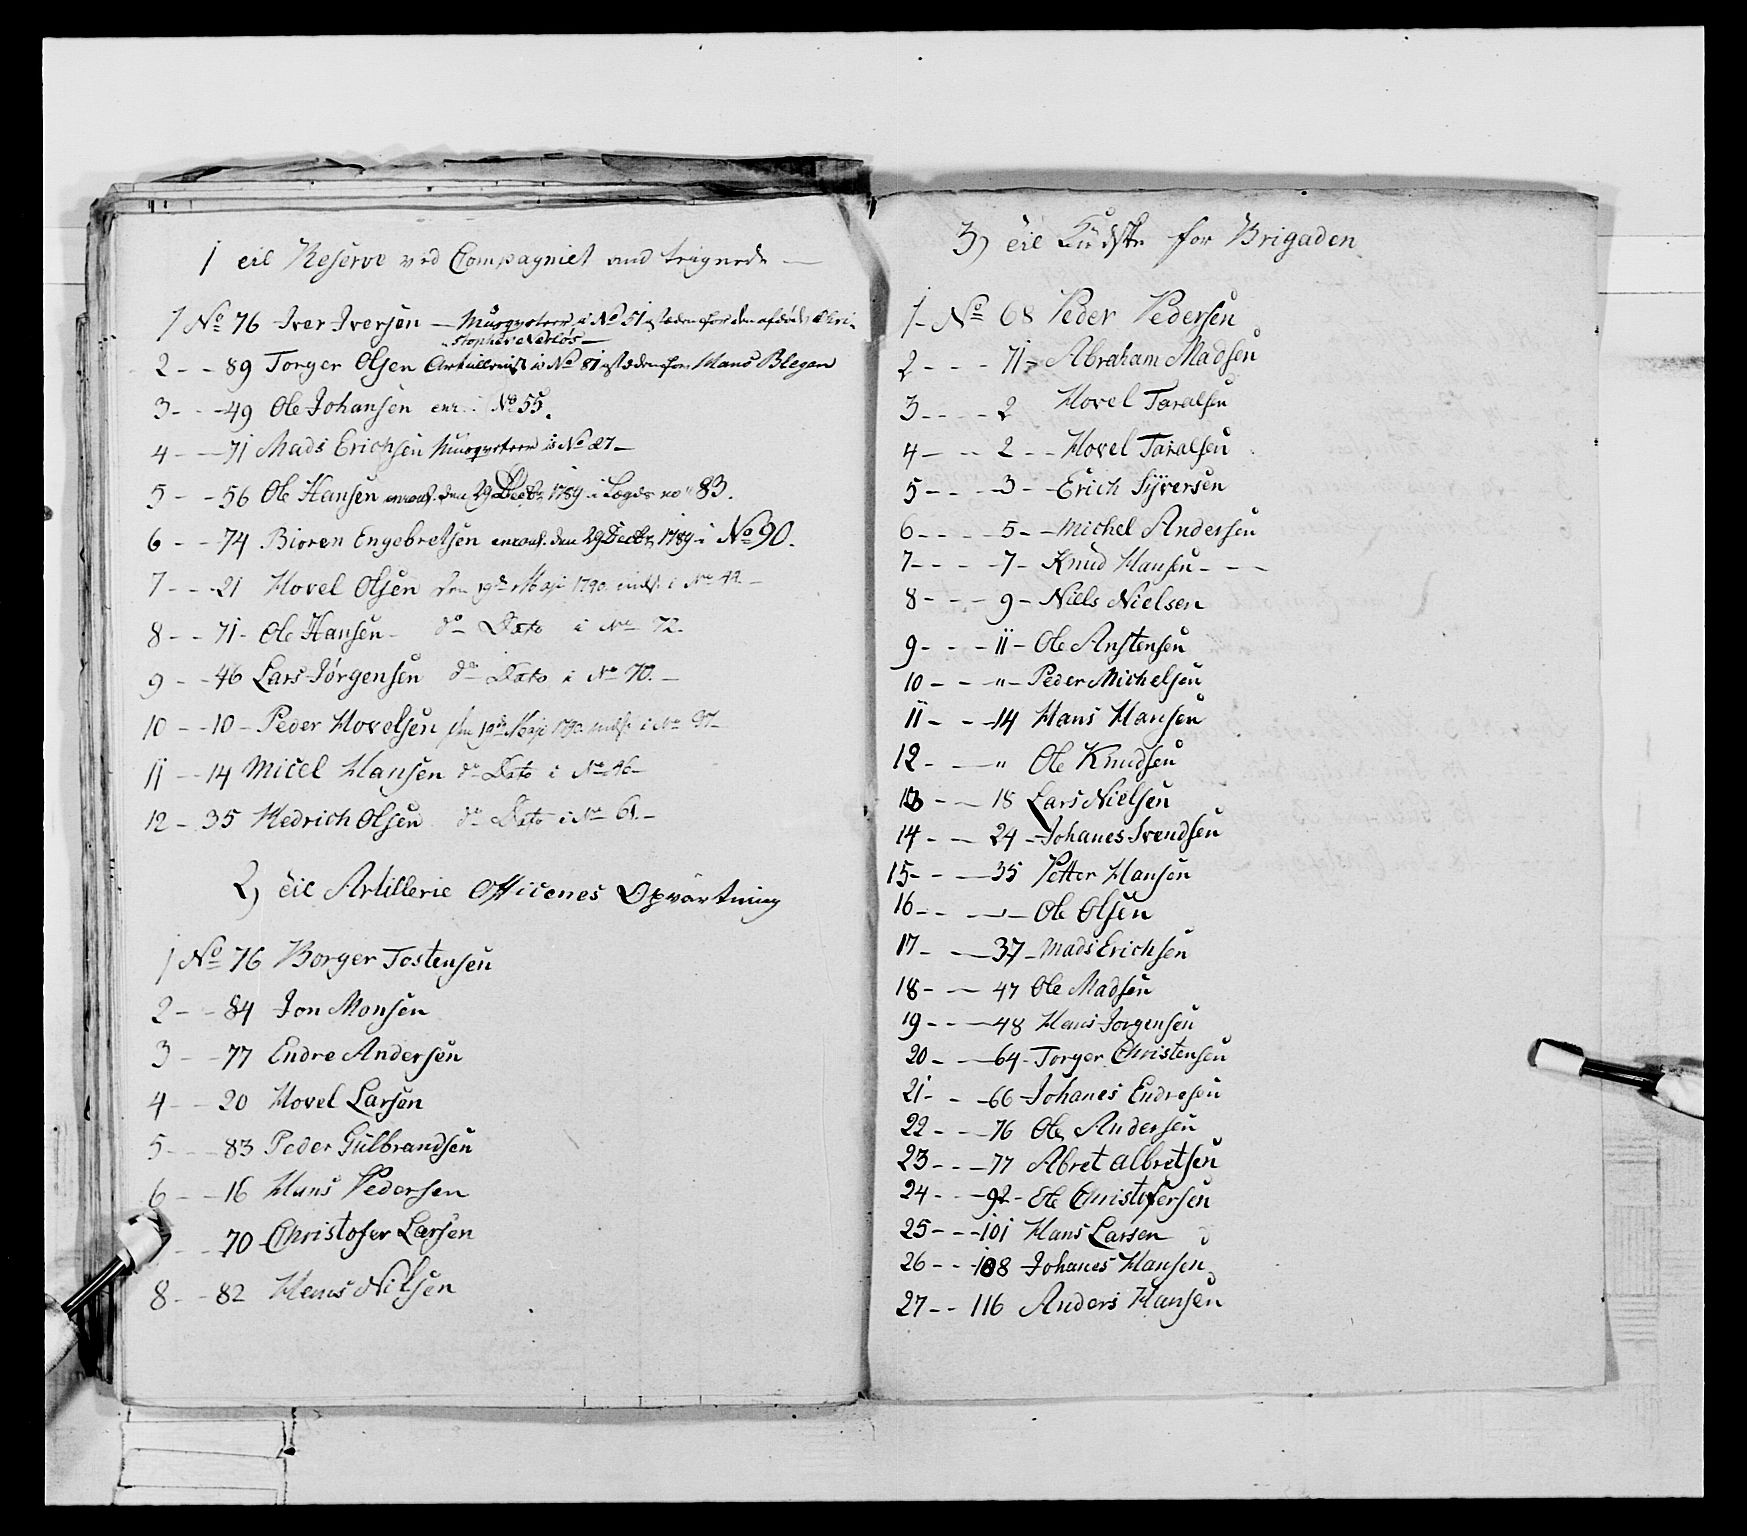 1 til Reserve ved Compagniet and
1 No 76 Iver Iversen — Musqueteer i No 51 istedenfor den afdøde Chri-
stopher
2 - - 89 Torger Olsen Artillerist i No 81 istedenfor Hans Blegen
3 - - 49 Ole Johansen enr. i No 55.
4 - - 71 Mads Erichsen Musqueteer i No 27 —
5 - - 56 Ole Hansen enroul. den 29 Decbr 1789 i Lægds no 83.
6 - - 74 Bioren Engebretsen enroul. den 29 Decbr 1789 i No 90.
7 - - 21 Hovel Olsen den 19de Maji 1790 indsk. i No 42 —
8 - - 71 - Ole Hansen - do Dato i No 72.
9 - - 46 Lars Jørgensen do Dato i No 70. —
10 - - 10 - Peder Hovelsen den 19de Maji 1790 indsk. i No 97 —
11 - - 14 Micel Hansen do Dato i No 46 —
12 - 35 Hedrich Olsen do Dato i No 61. —
2) til Artillerie Officenes Opvartning
1 No 76 Borger Tostensen
2 - - 84 Jon Monsen
3 - - 77 Endre Andersen
4 - - 20 Hovel Larsen
5 - - - 83 Peder Gulbrandsen
6 - - 16 Hans Pedersen
- - 70 Christofer Larsen
8 - - 82 Hans Nilsen
3) til Kudske for Brigaden
1 - No 68 Peder Pedersen
2 - - - 71 - Abraham Madsen
3 - - - - 2 Hovel Taralsen
4 - - - 2 - - Hovel Taralsen
5 - - - - 3 - - Erich Syversen
6 - - - - 5 - - Michel Andersen
7 - - - - 7 - Knud Hansen - - -
8 - - - - 9 - Niels Nielsen
9 - - - 11 - Ole Anstensen
10 - - - " - Peder Michelsen
11 - - - 14 Hans Hansen
12 - - - " Ole Knudsen
13 - - - 18 Lars Nielsen
14 - - - 24 - Johanes Svendsen
15 - - - - 35 Petter Hansen
16 - - - " - Ole Olsen
17 - - - 37 - Mads Erichsen
18 - - - 47 Ole Madsen
19 - - - 48 Hans Jorgensen
20 - - - 64 - Torger Christensen
21 - - - 66 - Johanes Endresen
22 - - - 76 Ole Andersen
23 - - - 77 Abret Albretsen
24 - - - 92 - Ole Christofersen
25 - - - 101 Hans Larsen
26 - - - 108 Johanes Hansen
27 - - 116 Anders Hansen